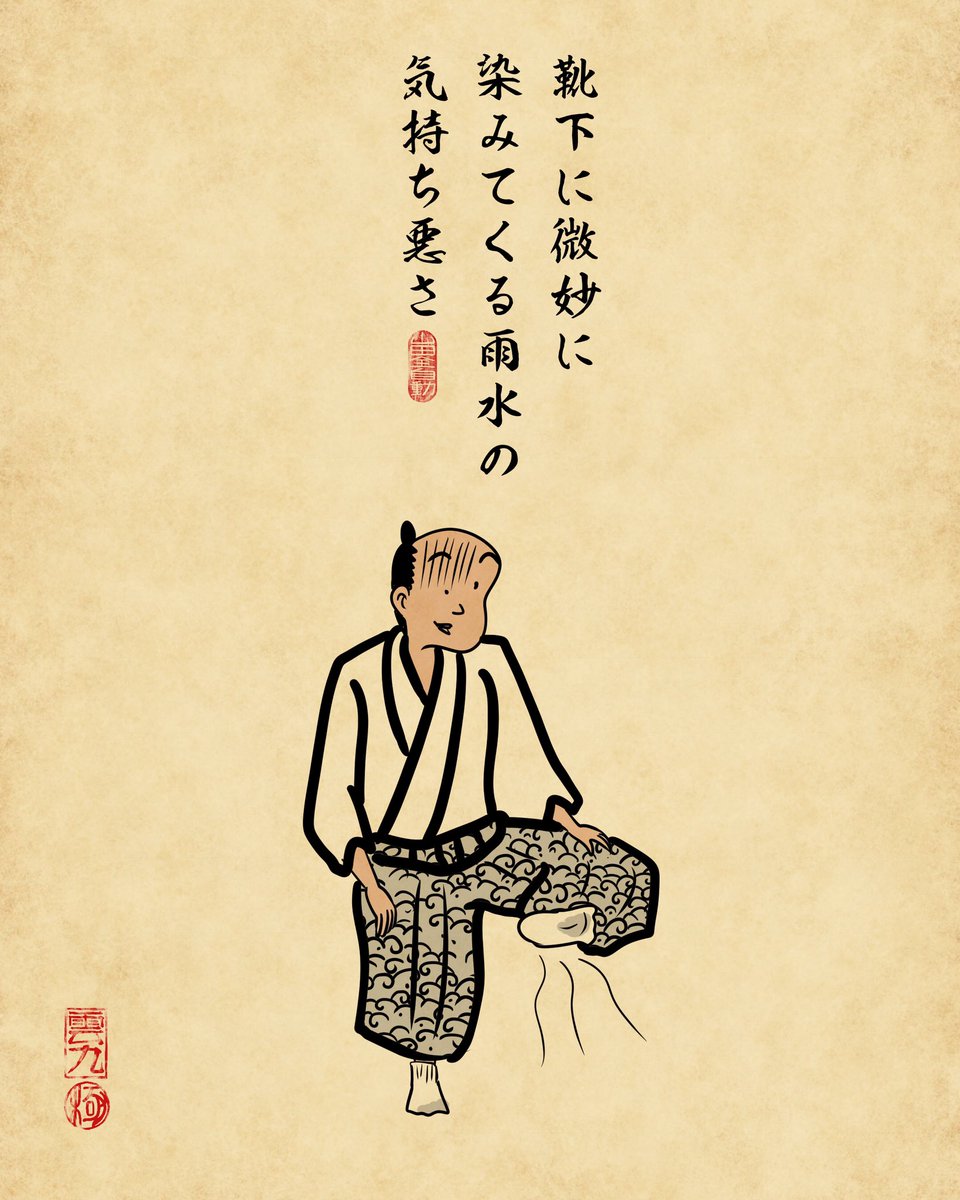 靴下に微妙に
染みてくる雨水の
気持ち悪さ
雲丸